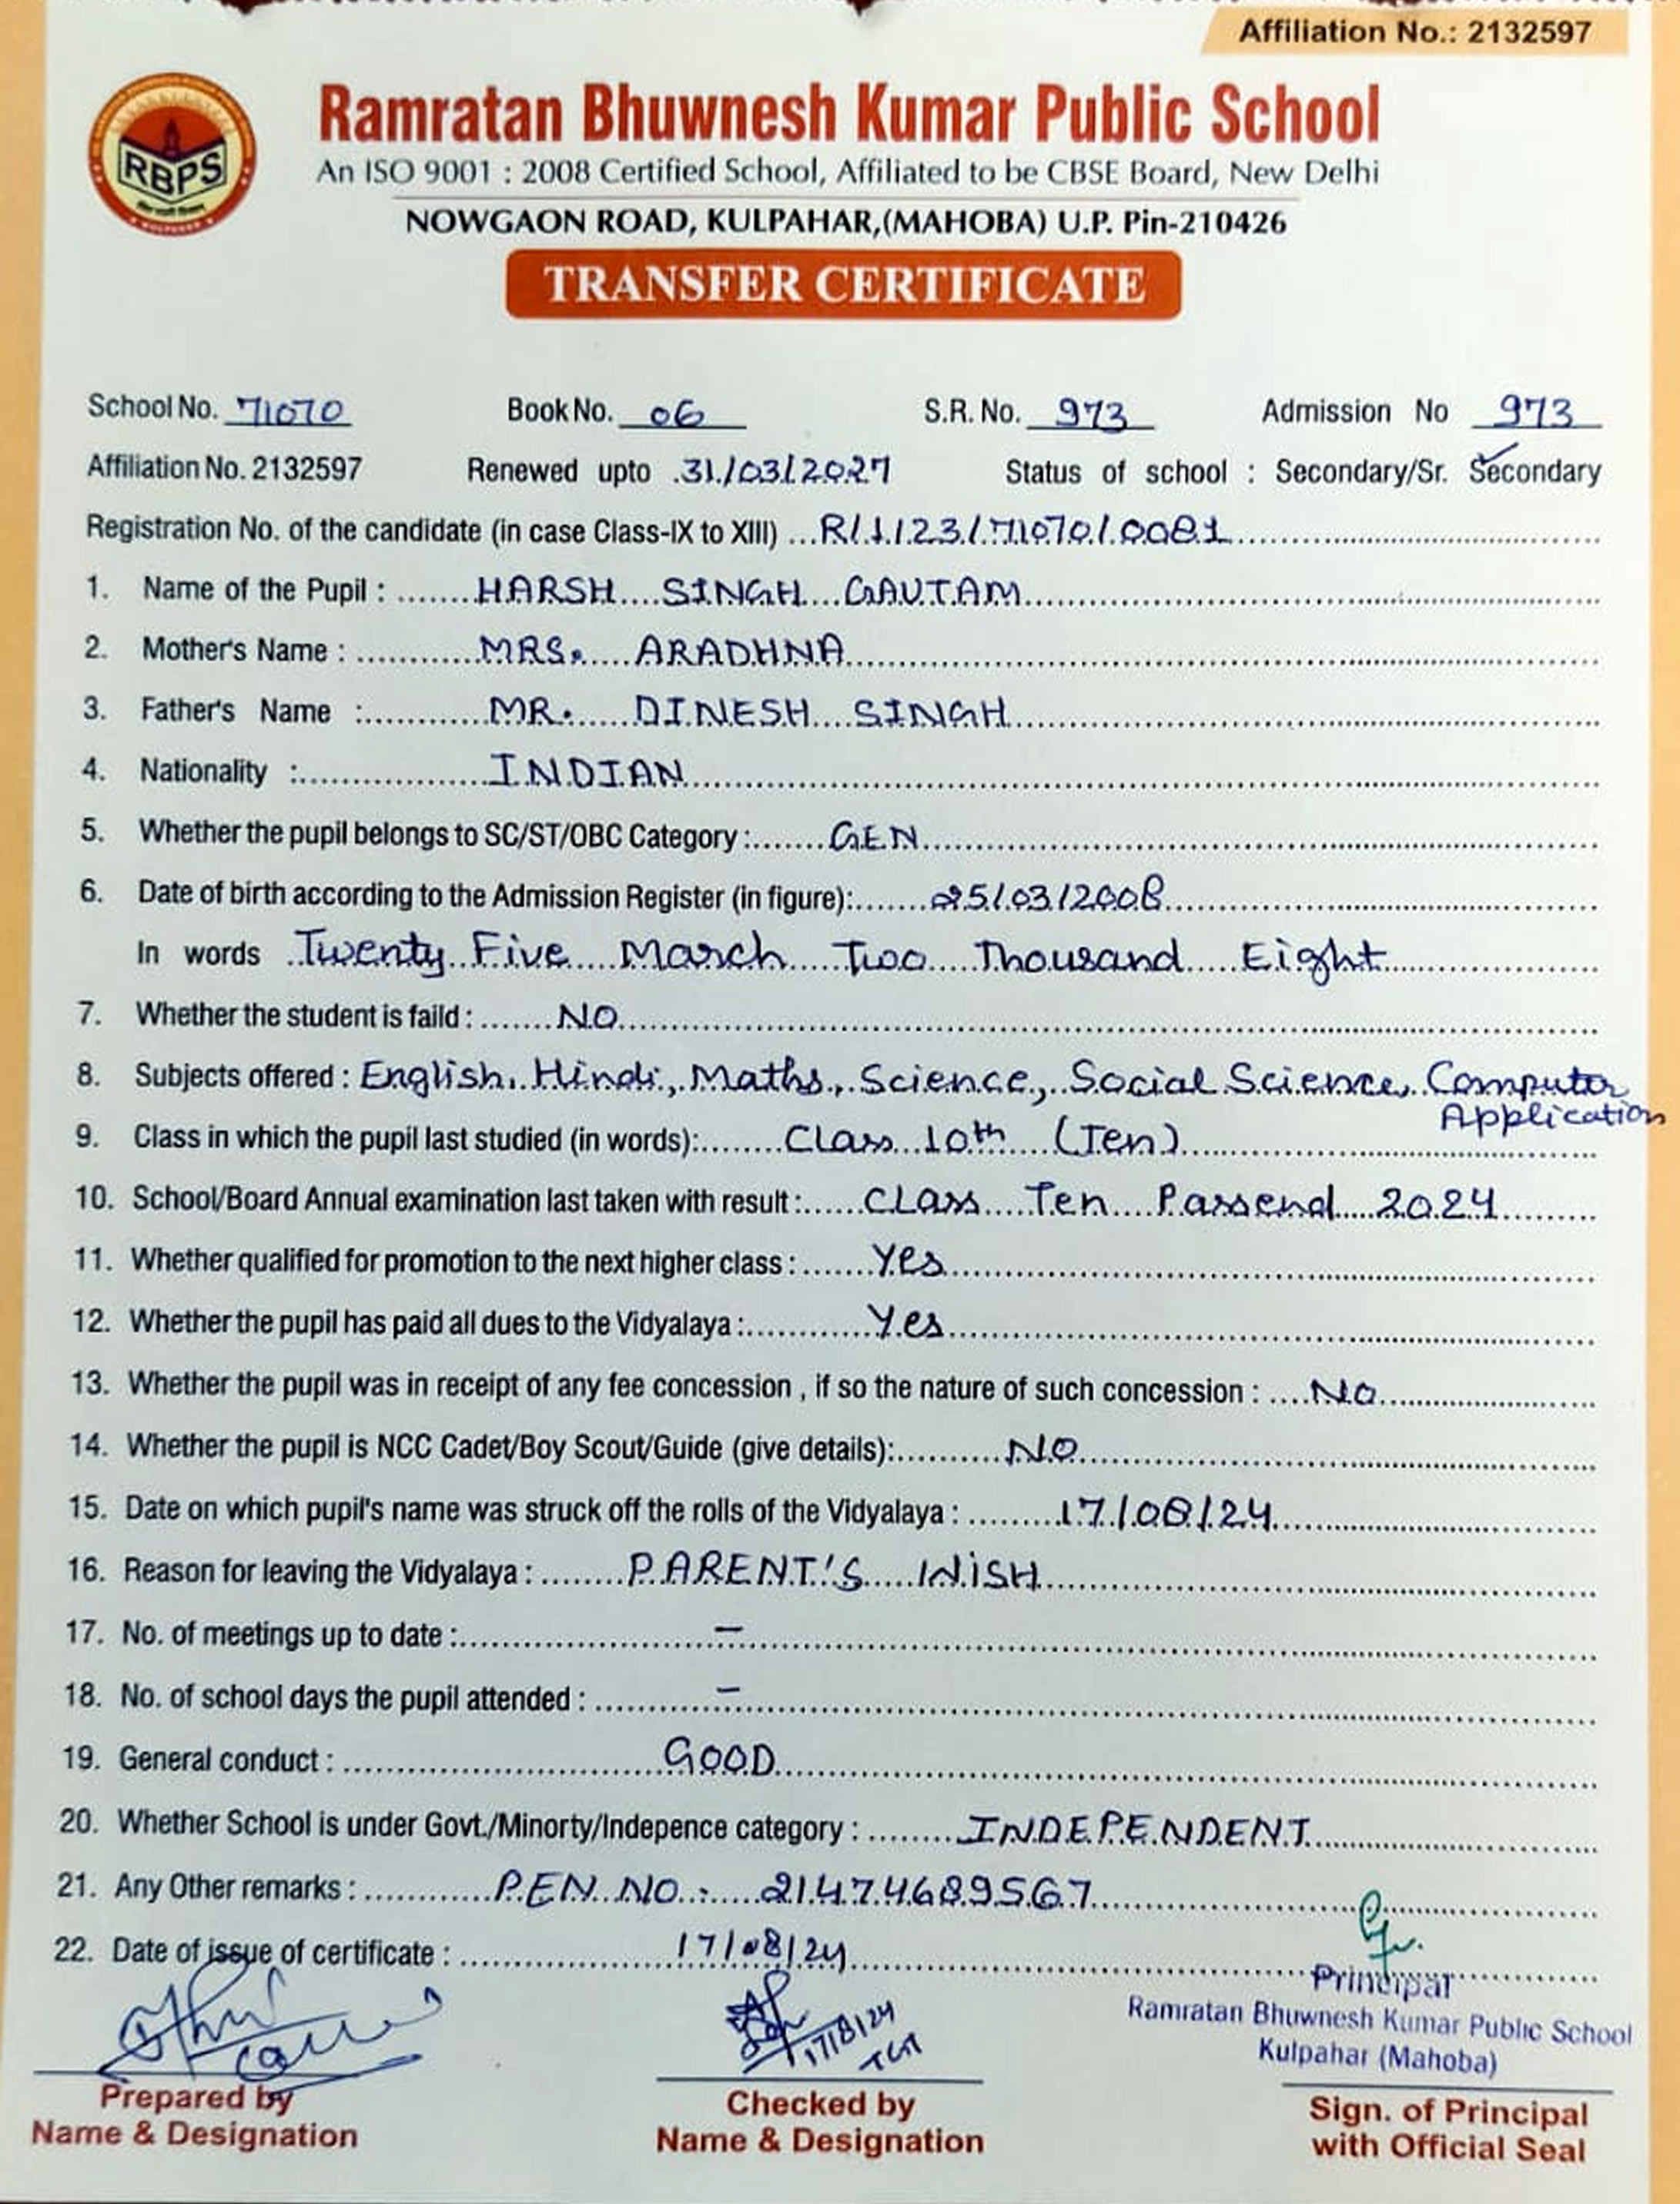 Affiliation No.: 2132597
Ramratan Bhuwnesh Kumar Public School
RBPS
An ISO 9001 : 2008 Certified School, Affiliated to be CBSE Board, New Delhi
NOWGAON ROAD, KULPAHAR,(MAHOBA) U.P. Pin-210426
TRANSFER CERTIFICATE
School No. 71070 Book No. 06 S.R. No. 973 Admission No 973
Affiliation No. 2132597 Renewed upto 31/03/2027 Status of school : Secondary/Sr. Secondary
Registration No. of the candidate (in case Class-IX to XIII) R/1/23/71070/0081
1. Name of the Pupil : HARSH SINGH GAUTAM
2. Mother's Name : MRS. ARADHNA
3. Father's Name : MR. DINESH SINGH
4. Nationality : INDIAN
5. Whether the pupil belongs to SC/ST/OBC Category : GEN
6. Date of birth according to the Admission Register (in figure): 25/03/2008
In words Twenty Five March Two Thousand Eight
7. Whether the student is faild : NO
8. Subjects offered : English, Hindi, Maths, Science, Social Science, Computer
Application
9. Class in which the pupil last studied (in words): Class 10th (Ten)
10. School/Board Annual examination last taken with result : Class Ten Passend 2024
11. Whether qualified for promotion to the next higher class : Yes
12. Whether the pupil has paid all dues to the Vidyalaya : Yes
13. Whether the pupil was in receipt of any fee concession , if so the nature of such concession : NO
14. Whether the pupil is NCC Cadet/Boy Scout/Guide (give details): NO
15. Date on which pupil's name was struck off the rolls of the Vidyalaya : 17/08/24
16. Reason for leaving the Vidyalaya : PARENT'S WISH
17. No. of meetings up to date : –
18. No. of school days the pupil attended : –
19. General conduct : GOOD
20. Whether School is under Govt./Minorty/Indepence category : INDEPENDENT
21. Any Other remarks : PEN NO :- 21474689567
22. Date of issue of certificate : 17/08/24
Principal
Ramratan Bhuwnesh Kumar Public School
Kulpahar (Mahoba)
17/8/24
TGT
Prepared by
Name & Designation
Checked by
Name & Designation
Sign. of Principal
with Official Seal